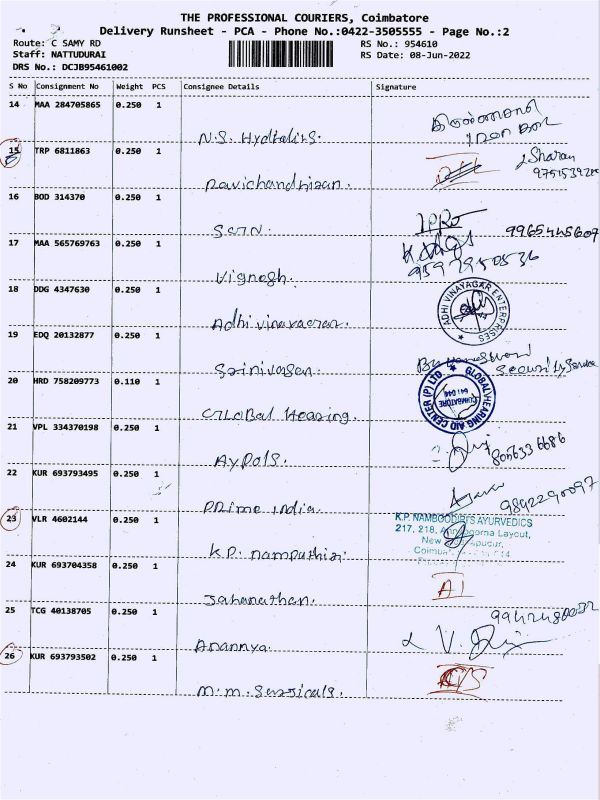 THE PROFESSIONAL COURIERS, Coimbatore
Delivery Runsheet - PCA - Phone No.:0422-3505555 - Page No.:2
Route: C SAMY RD
RS No.: 954610
Staff: NATTUDURAI
RS Date: 08-Jun-2022
DRS No.: DCJB95461002
S No Consignment No Weight PCS Consignee Details Signature
14 MAA 284705865 0.250 1
N.S. Hydralics.
15 TRP 6811863 0.250 1
Sharan
Ravichandhiran.
16 BOD 314370 0.250 1
9965445607
17 MAA 565769763 0.250 1
9597950536
Vignesh.
18 DDG 4347630 0.250 1
ADHI VINAYAGAR ENTERPRISES
Adhi vinayagar.
19 EDQ 20132877 0.250 1
Srinivasan.
Security Service
20 HRD 758209773 0.110 1
GLOBAL HEARING AID CENTER (P) LTD.
COIMBATORE
641 044
GLOBal Hearing.
21 VPL 334370198 0.250 1
8056336686
Aypols.
22 KUR 693793495 0.250 1
9892290097
Prime india.
23 VLR 4602144 0.250 1
K.P. NAMBOODIRI'S AYURVEDICS
217, 218, Layout,
New
K.P. namputhiri.
24 KUR 693704358 0.250 1
A1
Jahanathan.
25 TCG 40138705 0.250 1
Anannya.
26 KUR 693793502 0.250 1
m.m. Sursicals.